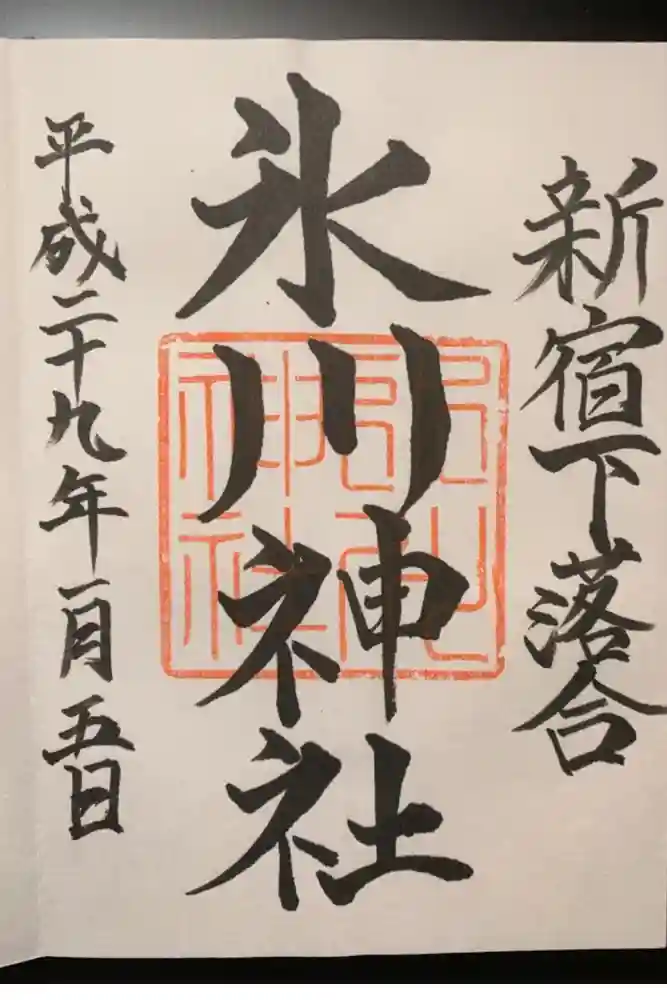 新宿下落合
氷川神社
平成二十九年一月五日